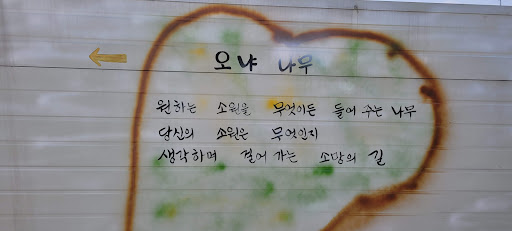 오냐 나무
원하는 소원을 무엇이든 들어 주는 나무
당신의 소원은 무엇인지
생각하며 걸어 가는 소망의 길